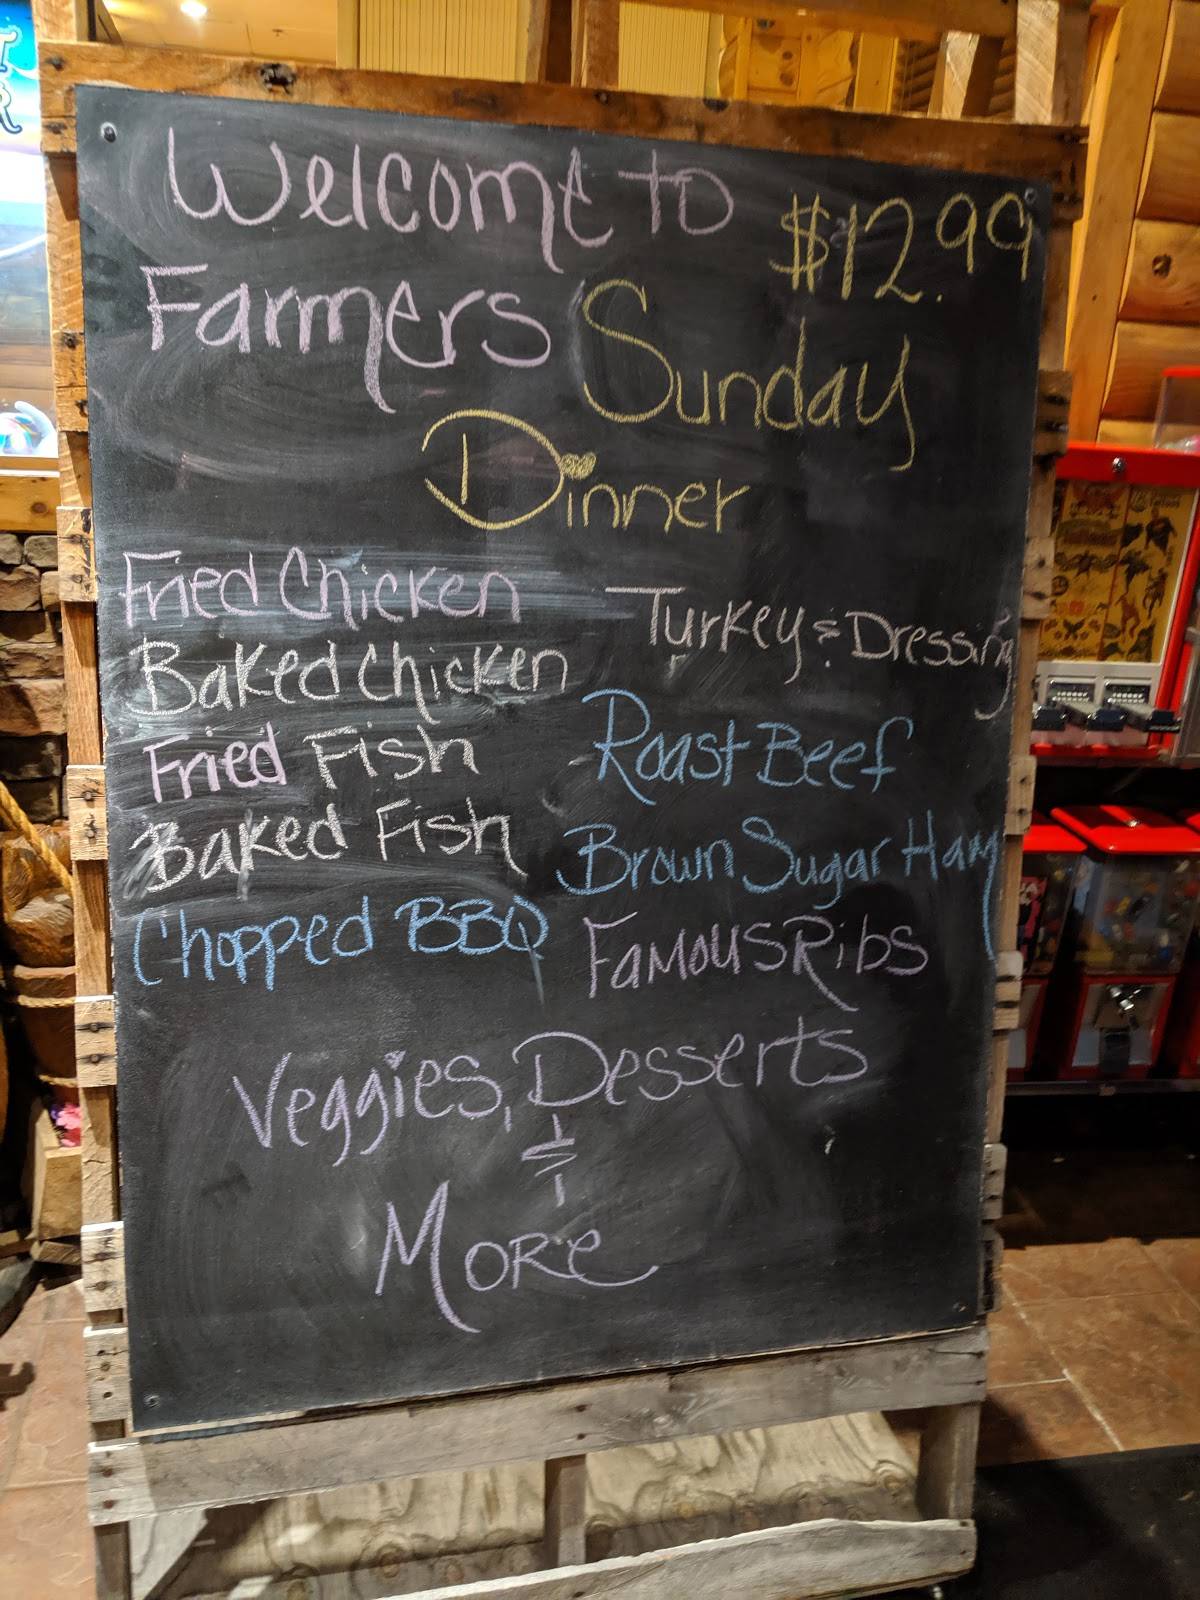 Welcome to
Farmers
$12.99
Sunday
Dinner
Fried Chicken
Baked Chicken
Fried Fish
Baked Fish
Chopped BBQ
Turkey & Dressing
Roast Beef
Brown Sugar Ham
Famous Ribs
Veggies, Desserts
&
More